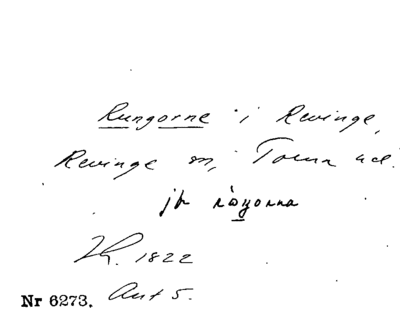 Rungorne i Revinge,
Revinge sn, Torna hd.
jfr råŋorna
Kh. 1822
Nr 6273. Akt 5.